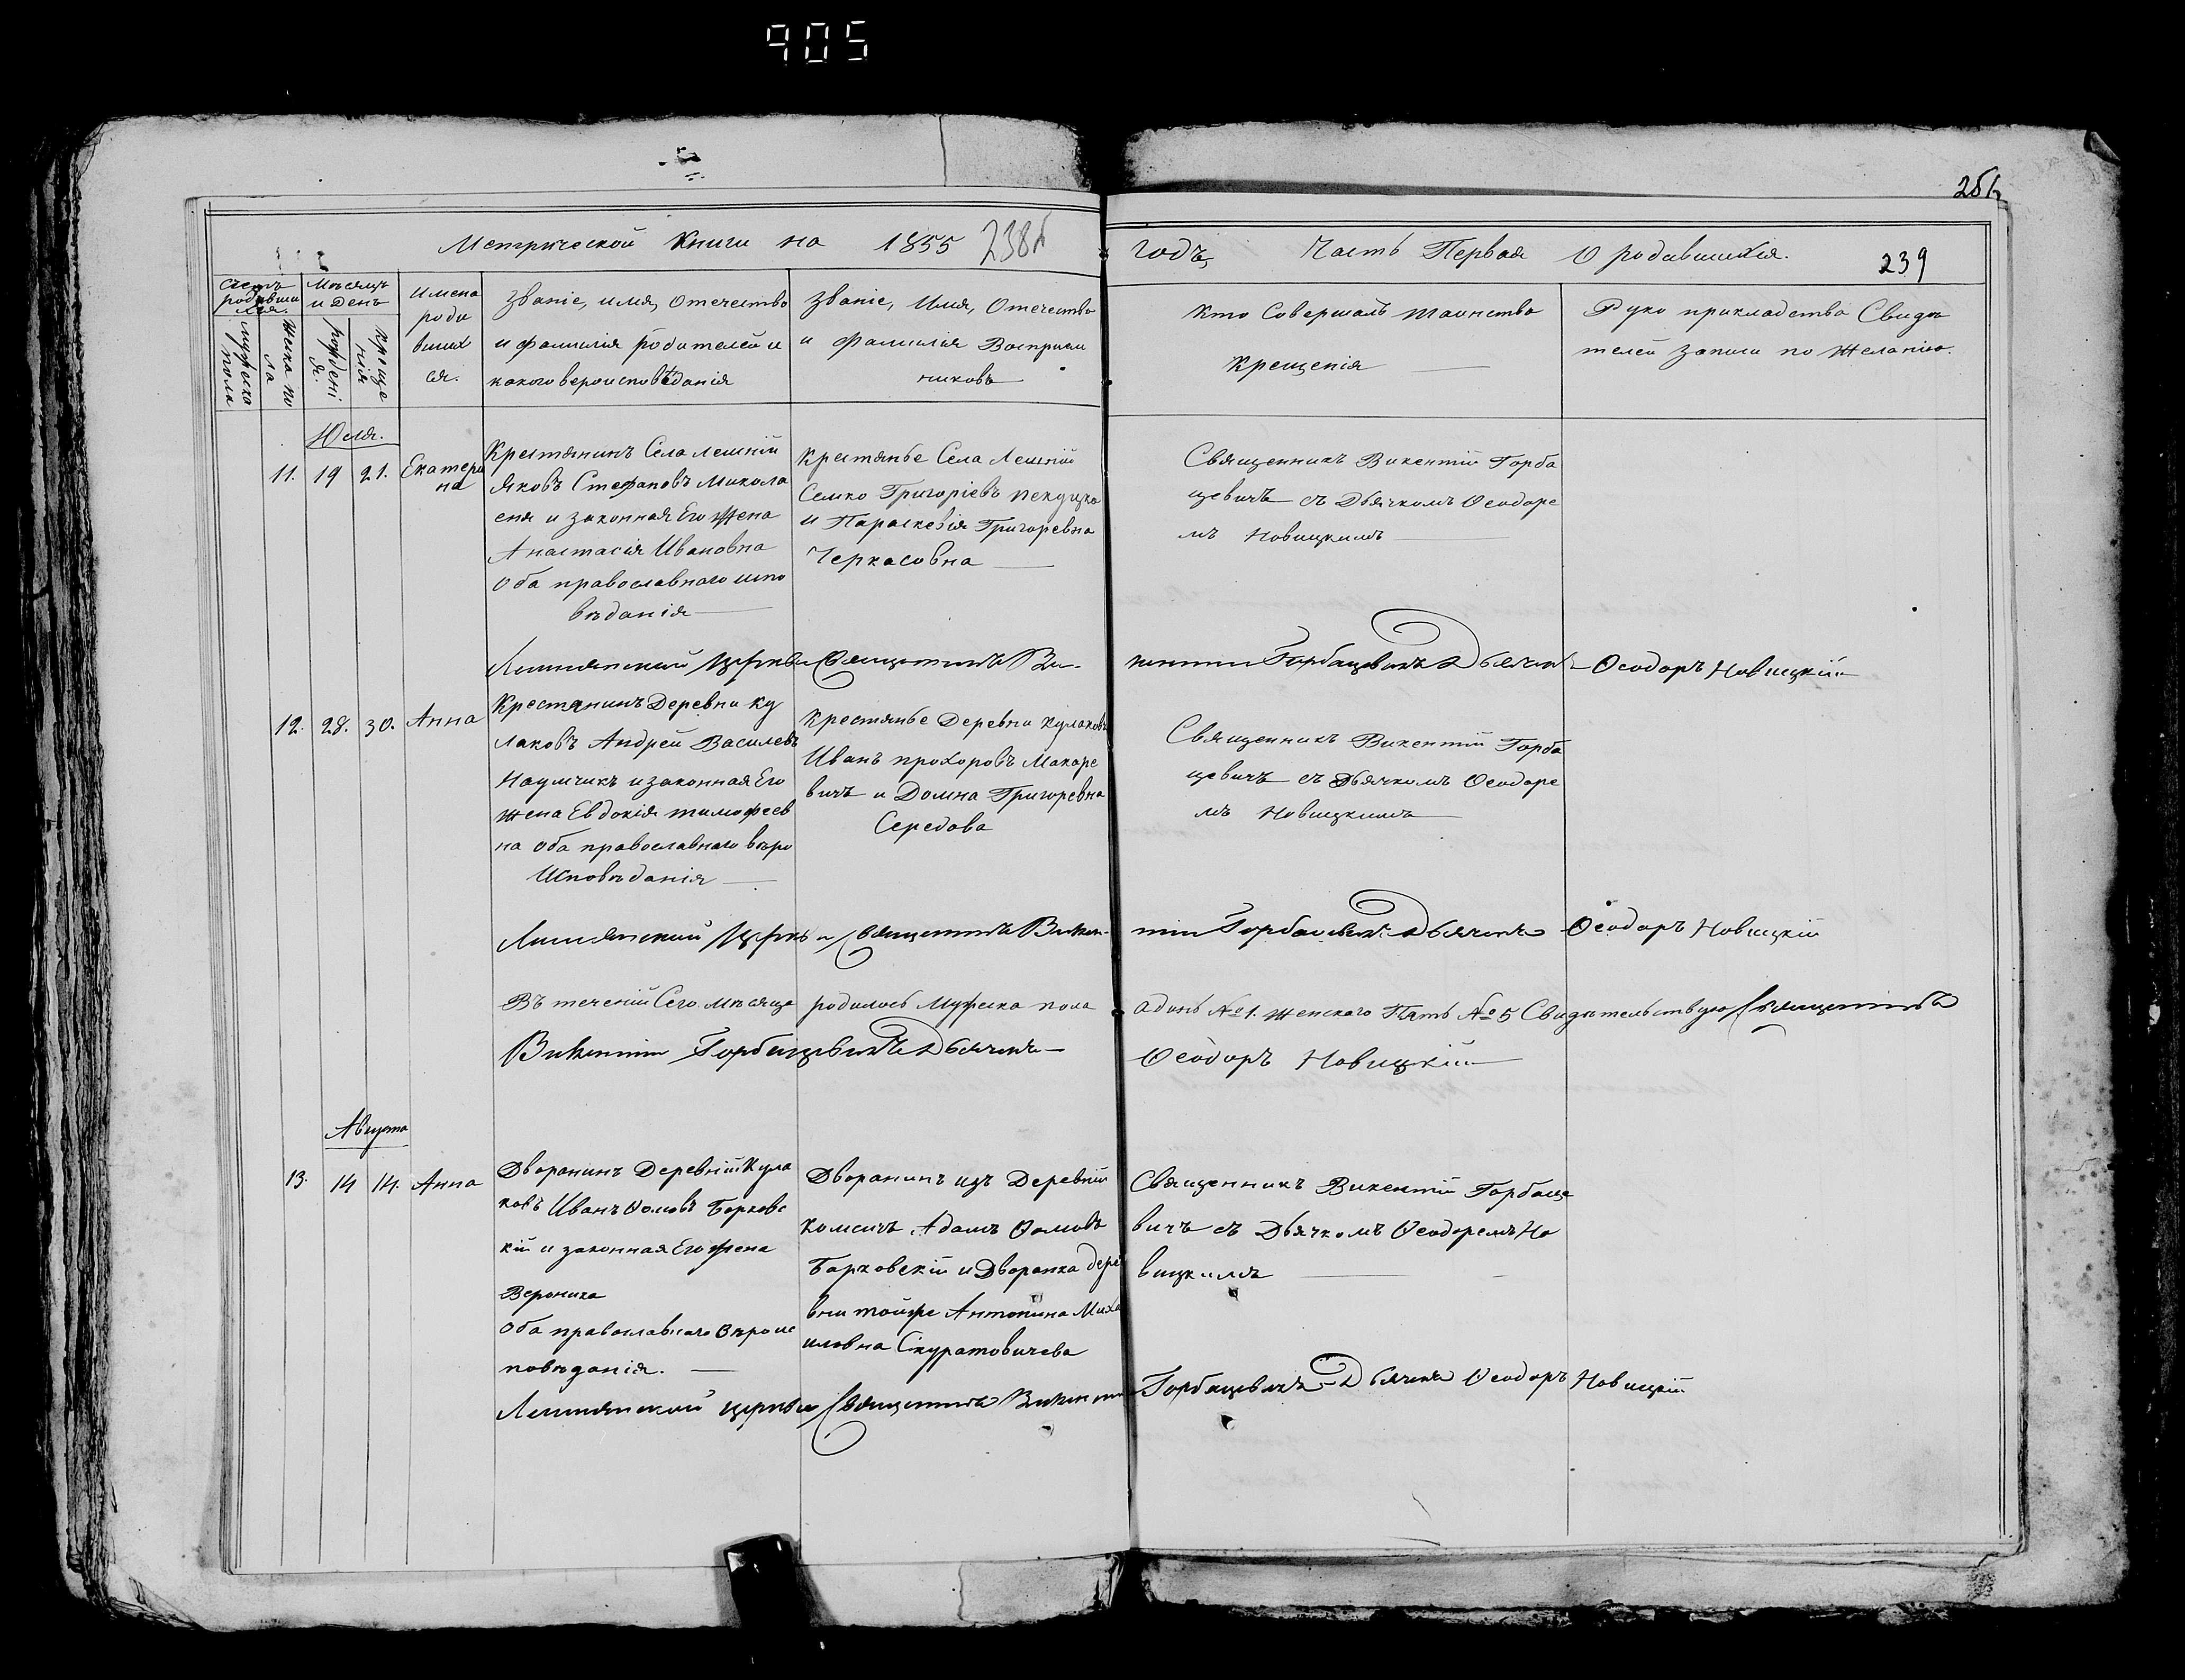 905
251
Метрической Книги на 1855 238б
годъ, Часть Первая О родившихся.
239
Счетъ родивши хся.
Мѣсяцъ и День
Имена роди вших ся.
Званіе, имя, Отечество
и фамилія родителей и
какого вероисповѣданія
Званіе, Имя, Отечество
и Фамилія Восприем
никовъ
Кто Совершалъ таинство
Крещенія
Руко прикладства Свидѣ
телей записи по желанію.
мужеска пола
женска по ла
рожденi я.
креще нія
Юля.
11. 19 21. Екатери на
Крестянинъ Села Лешній
Яковъ Стефановъ Микола
еня и законная Его Жена
Анастасія Ивановна
Оба православнаго испо
вѣданія
Крестянье Села Лешній
Семко Григоріевъ
и Параскевія Григоревна
Черкасовна
Священникъ Викентій Горба
цевичъ съ Дьячкомъ Ѳеодоро
мъ Новицкимъ
Лешнянской Церкви Священникъ Ви-
кентій Горбацевичъ Дьячекъ Ѳеодоръ Новицкій
12. 28. 30. Анна
Крестянинъ Деревни Ку
лаковъ Андрей Василевъ
Наумчикъ и законная Его
жена Евдокія тимофеев
на оба православнаго вѣро
Исповѣданія
Крестянье Деревни Кулаковъ
Иванъ прохоровъ Макаре
вичъ и Домна Григоревна
Середова
Священникъ Викентій Горба
цевичъ съ Дьячкомъ Ѳеодоре
мъ Новицкимъ
Лешнянской Церкви Священникъ Викен-
тій Горбацевичъ Дьячекъ Ѳеодоръ Новицкій
Въ теченій Сего Мѣсяца родилось Мужеска пола адинъ №1. женскаго Пять №5 Свидѣтельствую Священникъ
Викентій Горбацевичъ Дьячекъ Ѳеодоръ Новицкій
Августа
13. 14 14. Анна
Дворанинъ Деревній Кула
ковъ Иванъ Ѳомовъ Борковс
кій и законная Его жена
Вероника
Оба православнаго Вѣроис
повѣданія.
Дворанинъ изъ Деревній
Комсичъ Адамъ Ѳомовъ
Барковскій и Дворанка дере
вни тойже Антонина Миха
иловна Скуратовичева
Священникъ Викентій Горбаце
вичъ съ Дьячкомъ Ѳеодоремъ Но
вицкимъ
Лешнянской церкви Священникъ Викентій Горбацевичъ Дьячекъ Ѳеодоръ Новицкій